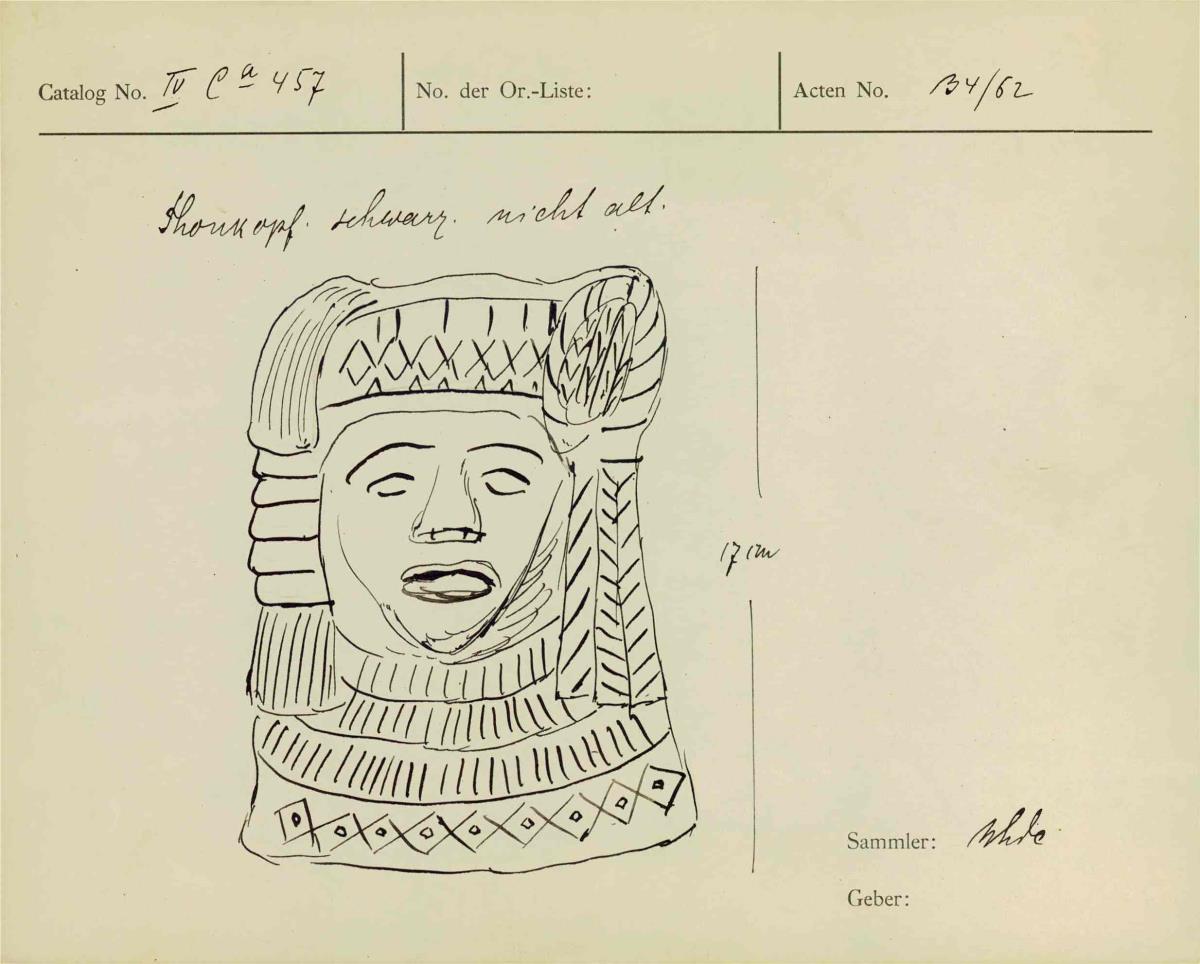 Catalog No. IV Ca 457 No. der Or.-Liste: Acten No. B4/62
Thonkopf. schwarz. nicht alt.
17 cm
Sammler: Uhde
Geber: